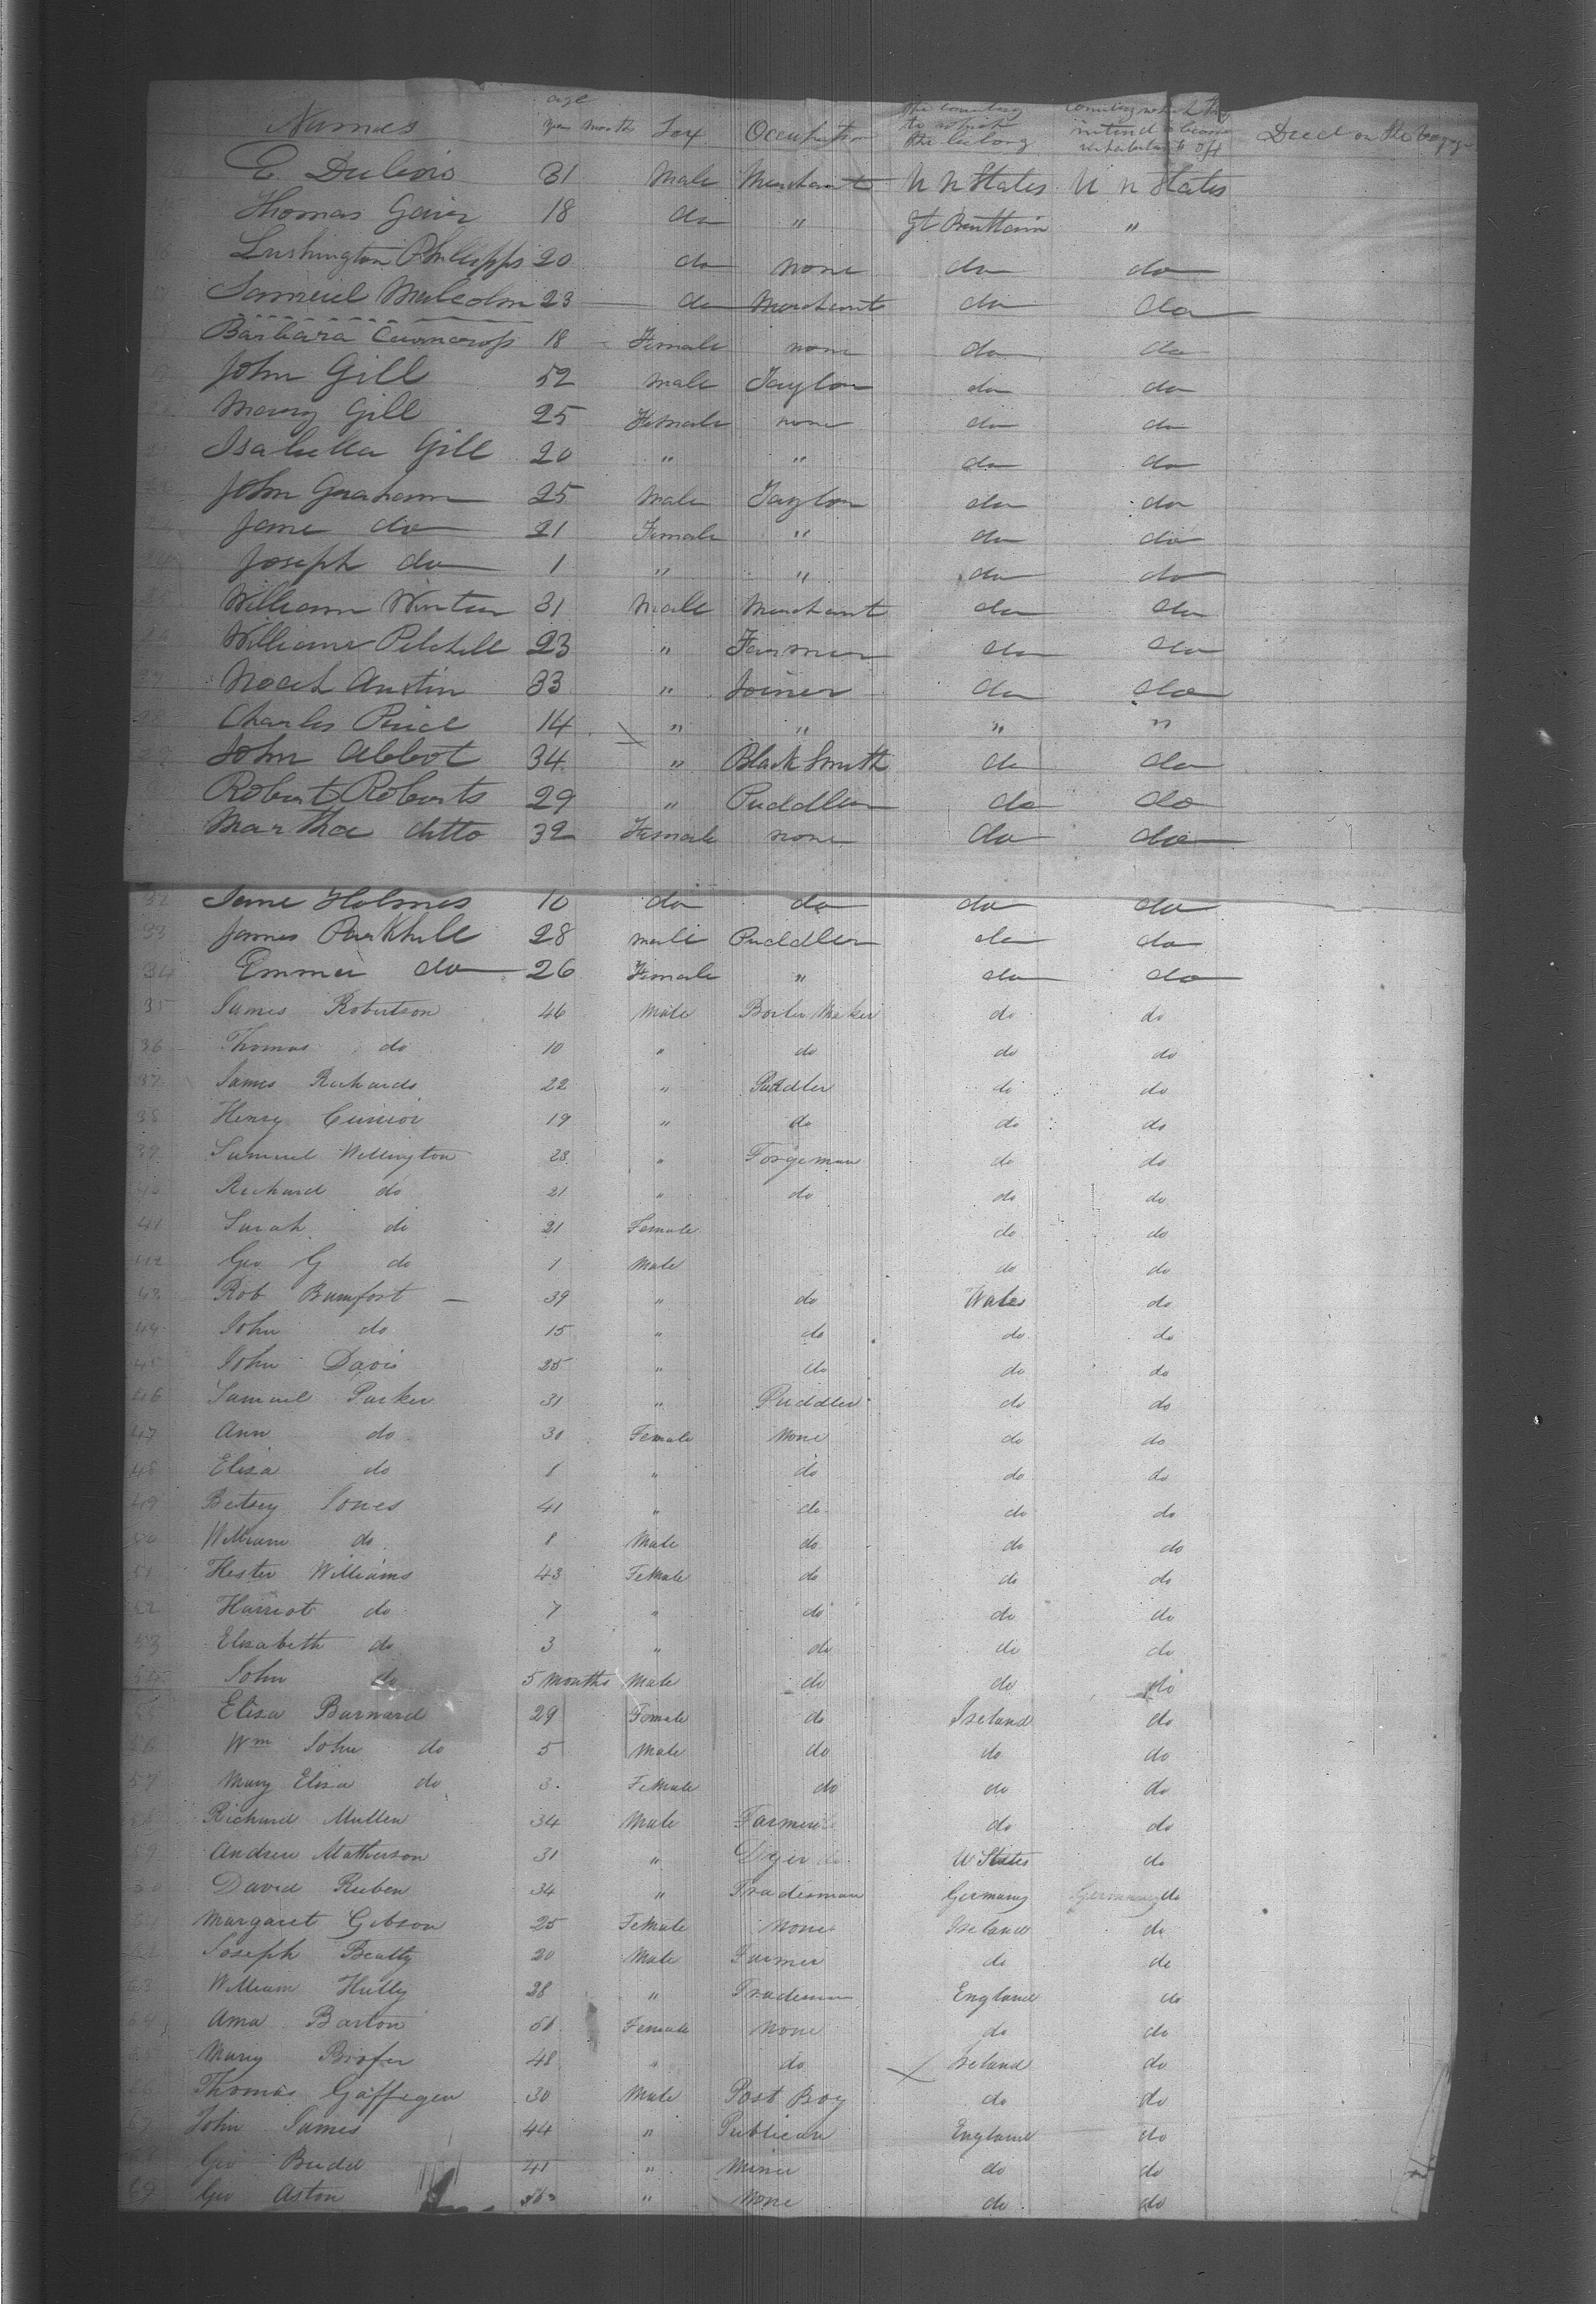 Names age years months Sex Occupation The country to which the belong Country which they intend to become inhabitants off Died on the Voyage
E Dubois 31 Male Merchant U N States U N States
Thomas 18 do " Gt Brittain "
Lushington Philipps 20 do none do do
Samuel Malcolm 23 do Merchant do do
Barbara 18 Female none do do
John Gill 52 male Taylor do do
Mary Gill 25 Female none do do
Isabella Gill 20 " " do do
John Graham 25 Male Taylor do do
Jane do 21 Female " do do
Joseph do 1 " " do do
William Winter 31 Male Merchant do do
William 23 " Farmer do do
Noah Austin 33 " Joiner do do
Charles Price 14 " " " "
29 John Abbot 34 " Black Smith do do
Robert Roberts 29 " Puddler do do
Martha ditto 32 Female none do do
32 Jane Holmes 10 do do do do
33 James Parkhill 28 male Puddler do do
34 Emma do 26 Female " do do
35 James Robertson 46 Male Boiler Maker do do
36 Thomas do 10 " do do do
37 James Richards 22 " Puddler do do
38 Henry 19 " do do do
39 Samuel Wellington 23 " Forgeman do do
40 Richard do 21 " do do do
41 Sarah do 21 Female do do
42 Geo G do 1 Male do do
43 Rob Bumfort 39 " do Wales do
44 John do 15 " do do do
45 John Davis 25 " do do do
46 Samuel Parker 31 " Puddler do do
47 Ann do 30 Female None do do
48 Elisa do 8 " do do do
49 Betsey Jones 41 " do do do
50 William do 8 Male do do do
51 Hester Williams 43 Female do do do
52 Harriot do 7 " do do do
53 Elisabeth do 3 " do do do
54 John do 5 months Male do do do
55 Elisa Barnard 29 Female do Ireland do
56 Wm John do 5 Male do do do
57 Mary Elisa do 3 Female do do do
58 Richard Mullen 34 Male Farmer do do
59 Andrew Matherson 31 " Dyer U States do
60 David Ruben 34 " Tradesman Germany Germany do
61 Margaret Gibson 25 Female None Ireland do
62 Joseph Beatty 20 Male Farmer do do
63 William Hully 28 " Tradesman England do
64 Ama Barton Female None do do
65 Mary 48 " do Ireland do
66 Thomas Gaffigen 30 Male Post Boy do do
67 John James 44 " Publican England do
68 Geo Budd 41 " Miner do do
69 Geo Aston " None do do